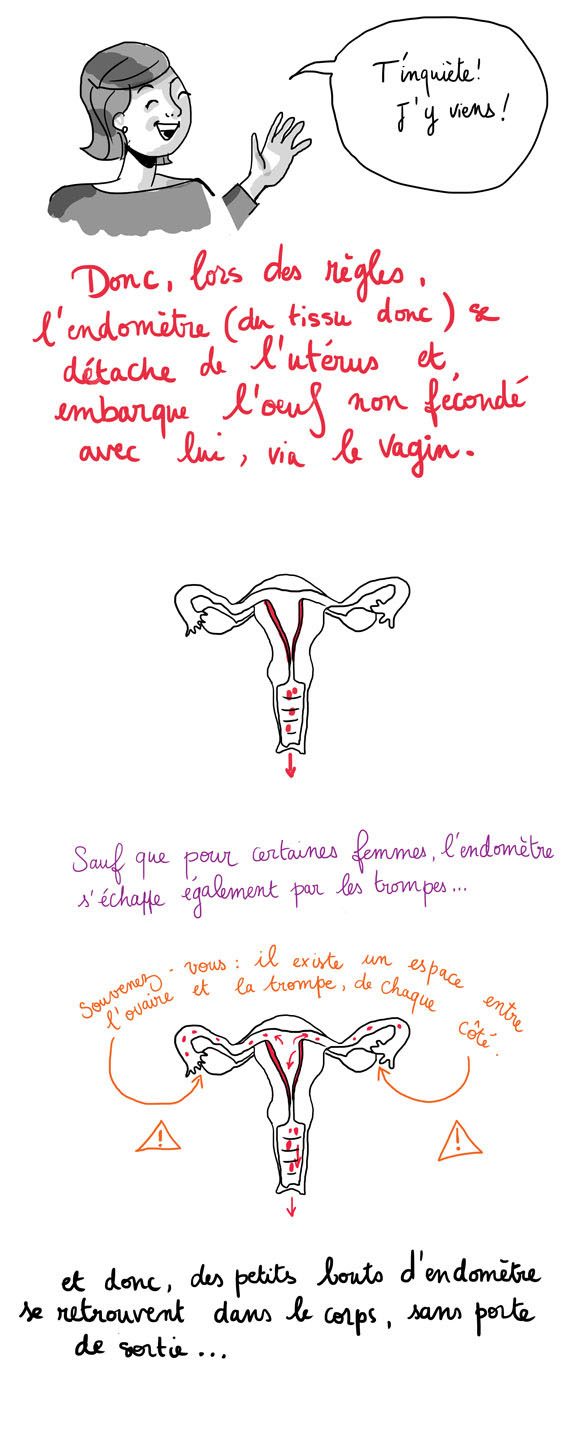 T'inquiète!
J'y viens!
Donc, lors des règles,
l'endomètre (du tissu donc) se
détache de l'utérus et,
embarque l'oeuf non fécondé
avec lui, via le vagin.
Sauf que pour certaines femmes, l'endomètre
s'échappe également par les trompes...
Souvenez-vous: il existe un espace entre
l'ovaire et la trompe, de chaque côté.
!
!
et donc, des petits bouts d'endomètre
se retrouvent dans le corps, sans porte
de sortie...